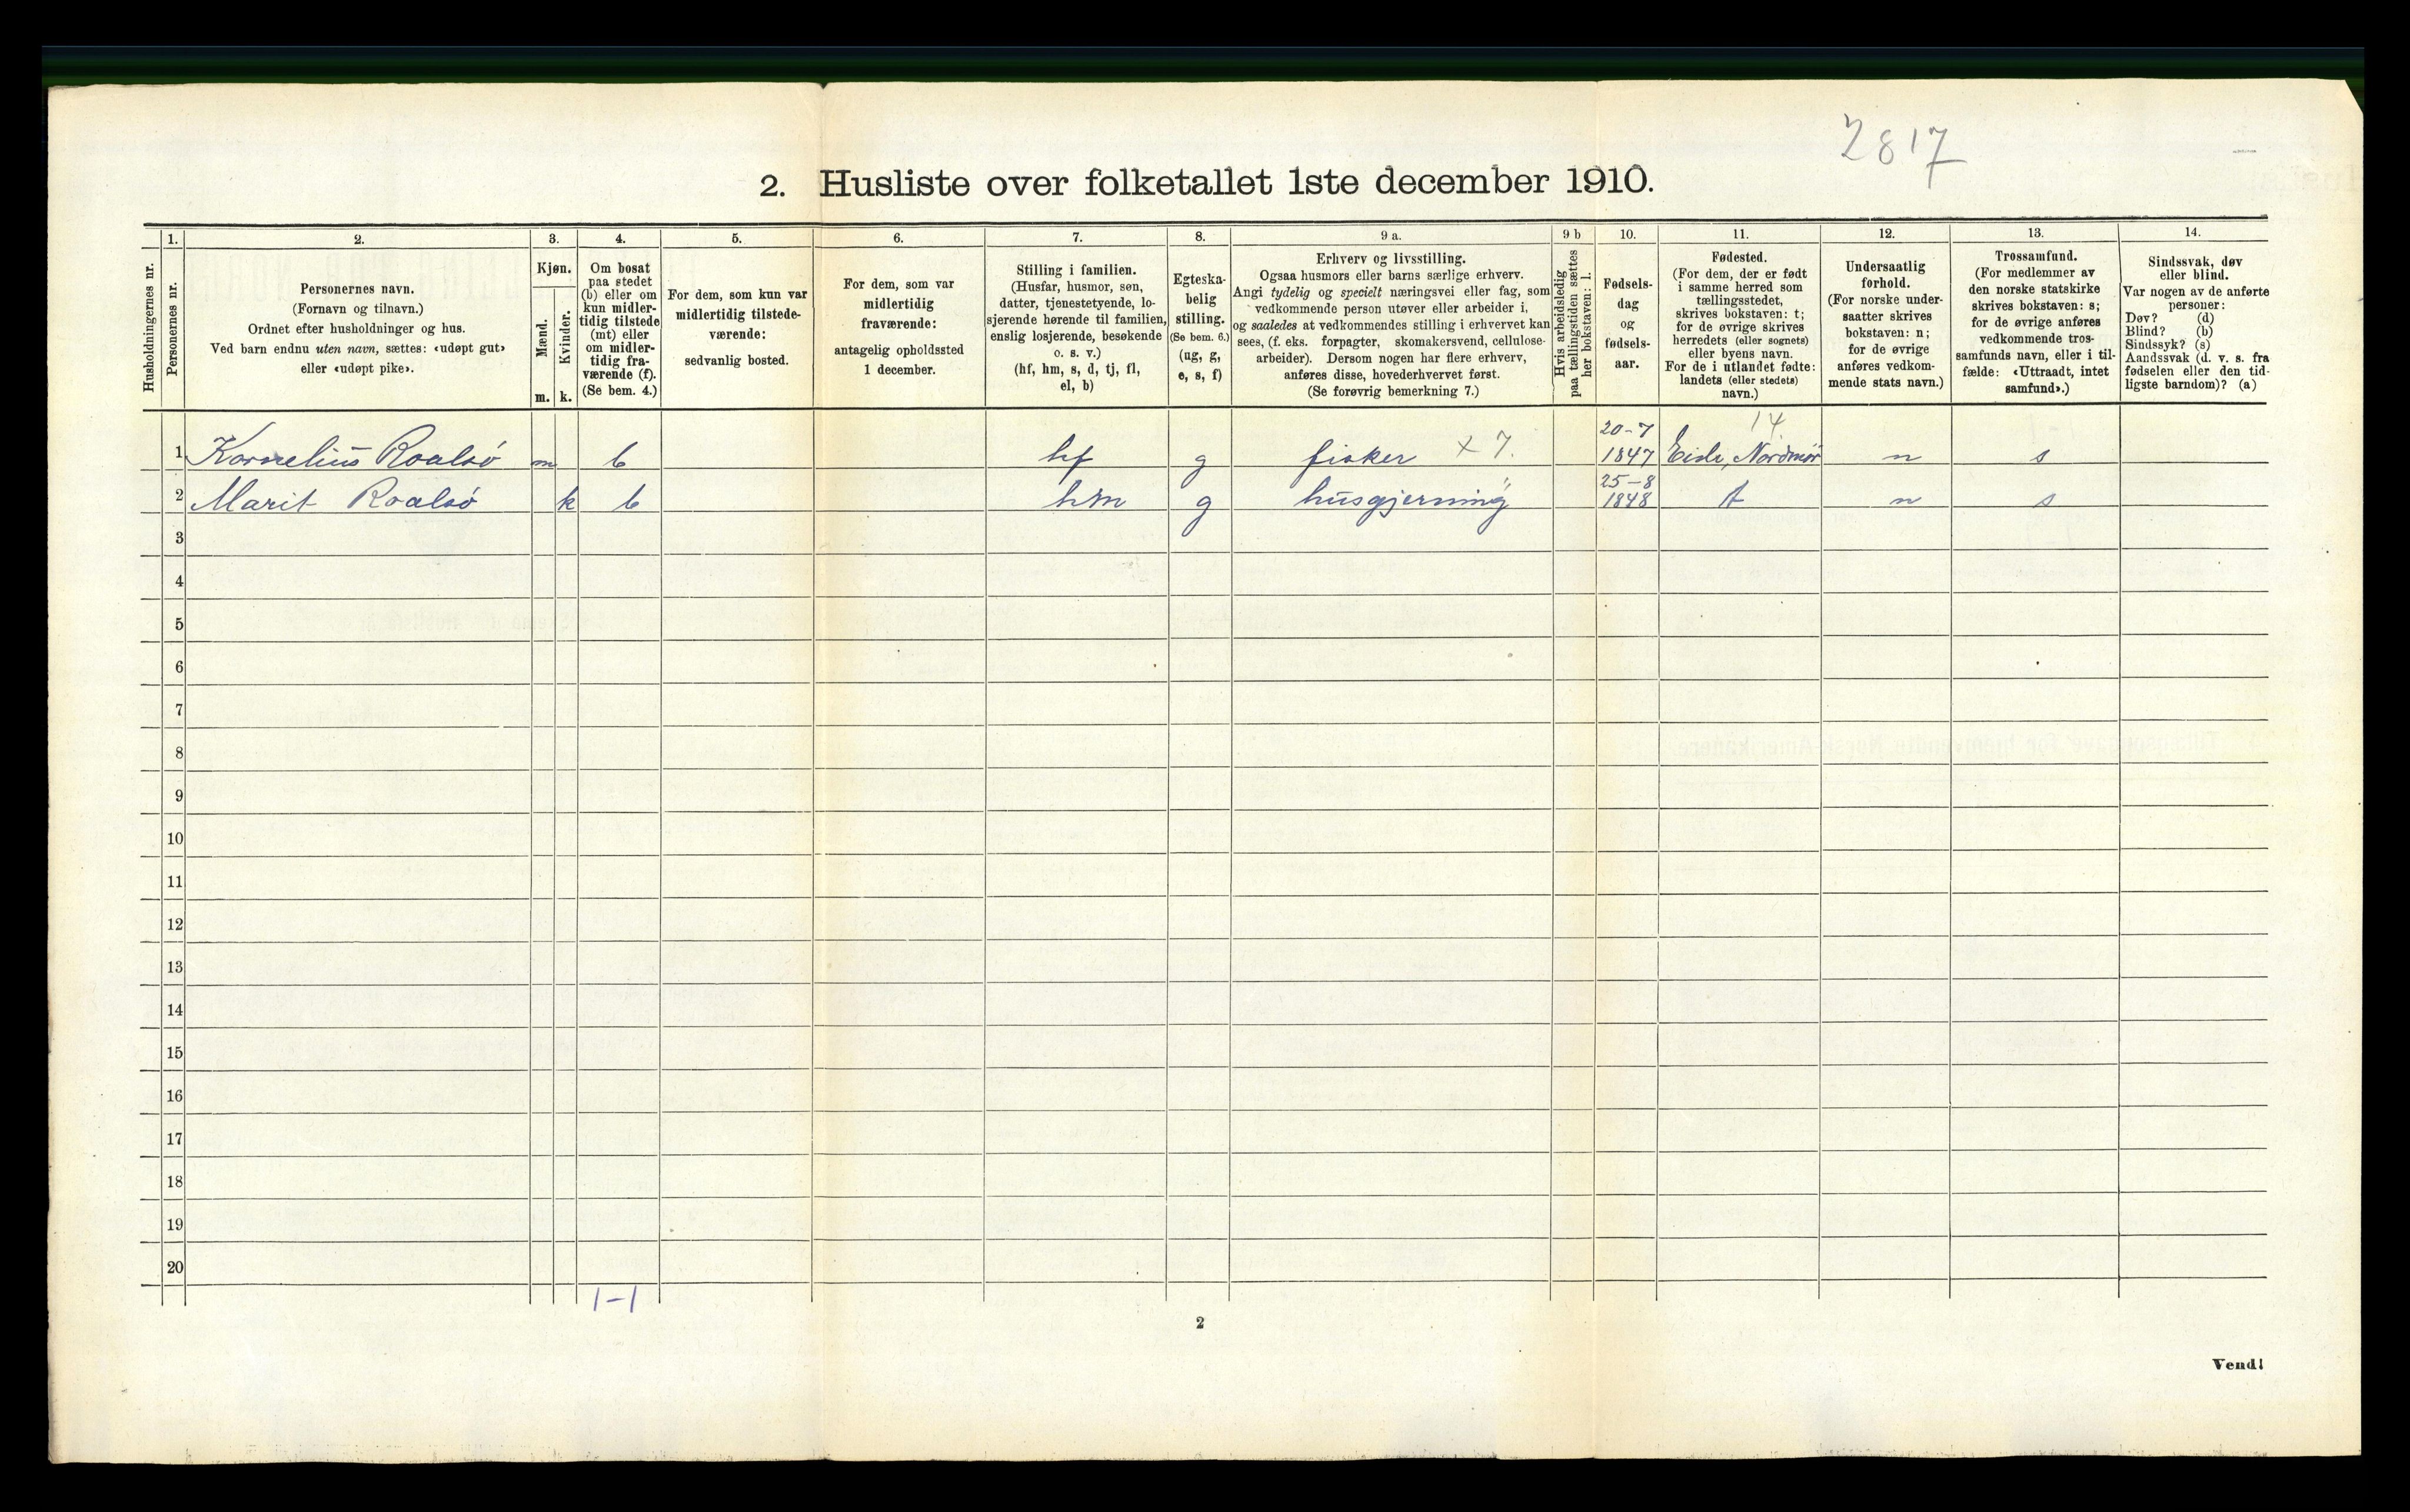 2817
2. Husliste over folketallet 1ste december 1910.
Husholdningernes nr.
1.
Personernes nr.
2.
Personernes navn.
(Fornavn og tilnavn.)
Ordnet efter husholdninger og hus.
Ved barn endnu uten navn, sættes: «udøpt gut»
eller «udøpt pike».
3.
Kjøn.
Mænd.
Kvinder.
m. k.
4.
Om bosat
paa stedet
(b) eller om
kun midler-
tidig tilstede
(mt) eller
om midler-
tidig fra-
værende (f).
(Se bem. 4.)
5.
For dem, som kun var
midlertidig tilstede-
værende:
sedvanlig bosted.
6.
For dem, som var
midlertidig
fraværende:
antagelig opholdssted
1 december.
7.
Stilling i familien.
(Husfar, husmor, søn,
datter, tjenestetyende, lo-
sjerende hørende til familien,
enslig losjerende, besøkende
o. s. v.)
(hf, hm, s, d, tj, fl,
el, b)
8.
Egteska-
belig
stilling.
(Se bem. 6.)
(ug, g,
e, s, f)
9 a.
Erhverv og livsstilling.
Ogsaa husmors eller barns særlige erhverv.
Angi tydelig og specielt næringsvei eller fag, som
vedkommende person utøver eller arbeider i,
og saaledes at vedkommendes stilling i erhvervet kan
sees, (f. eks. forpagter, skomakersvend, cellulose-
arbeider). Dersom nogen har flere erhverv,
anføres disse, hovederhvervet først.
(Se forøvrig bemerkning 7.)
9 b
Hvis arbeidsledig
paa tællingstiden sættes
her bokstaven: l.
10.
Fødsels-
dag
og
fødsels-
aar.
11.
Fødested.
(For dem, der er født
i samme herred som
tællingsstedet,
skrives bokstaven: t;
for de øvrige skrives
herredets (eller sognets)
eller byens navn.
For de i utlandet fødte:
landets (eller stedets)
navn.)
12.
Undersaatlig
forhold.
(For norske under-
saatter skrives
bokstaven: n;
for de øvrige
anføres vedkom-
mende stats navn.)
13.
Trossamfund.
(For medlemmer av
den norske statskirke
skrives bokstaven: s;
for de øvrige anføres
vedkommende tros-
samfunds navn, eller i til-
fælde: «Uttraadt, intet
samfund».)
14.
Sindssvak, døv
eller blind.
Var nogen av de anførte
personer:
Døv? (d)
Blind? (b)
Sindssyk? (s)
Aandssvak (d. v. s. fra
fødselen eller den tid-
ligste barndom)? (a)
1 Kornelius Roalsø m b hf g fisker x 7. 20-7 1847 14 Eide, Nordmør n s
2 Marit Roalsø k b hm g husgjerning 25-8 1848 t n s
3
4
5
6
7
8
9
10
11
12
13
14
15
16
17
18
19
20
1-1
2
Vend!